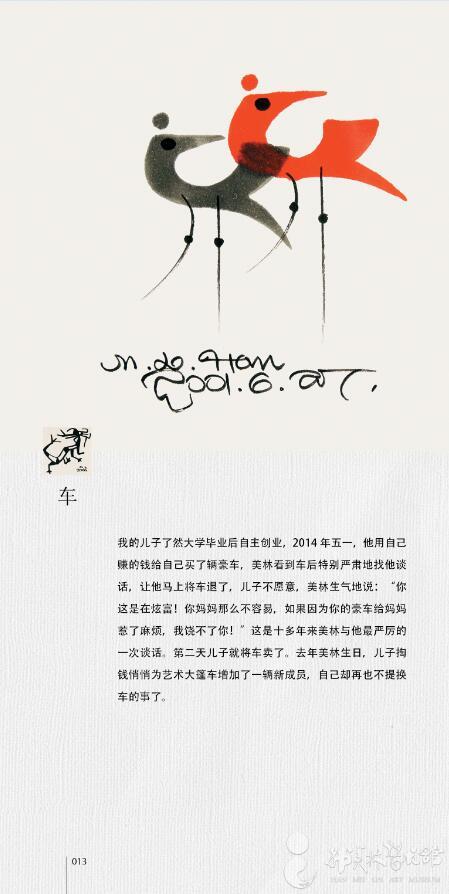 2001.6.
车
我的儿子了然大学毕业后自主创业，2014年五一，他用自己
赚的钱给自己买了辆豪车，美林看到车后特别严肃地找他谈
话，让他马上将车退了，儿子不愿意，美林生气地说：“你
这是在炫富！你妈妈那么不容易，如果因为你的豪车给妈妈
惹了麻烦，我饶不了你！”这是十多年来美林与他最严厉的
一次谈话。第二天儿子就将车卖了。去年美林生日，儿子掏
钱悄悄为艺术大篷车增加了一辆新成员，自己却再也不提换
车的事了。
013
HAN MEI LIN ART MUSEUM